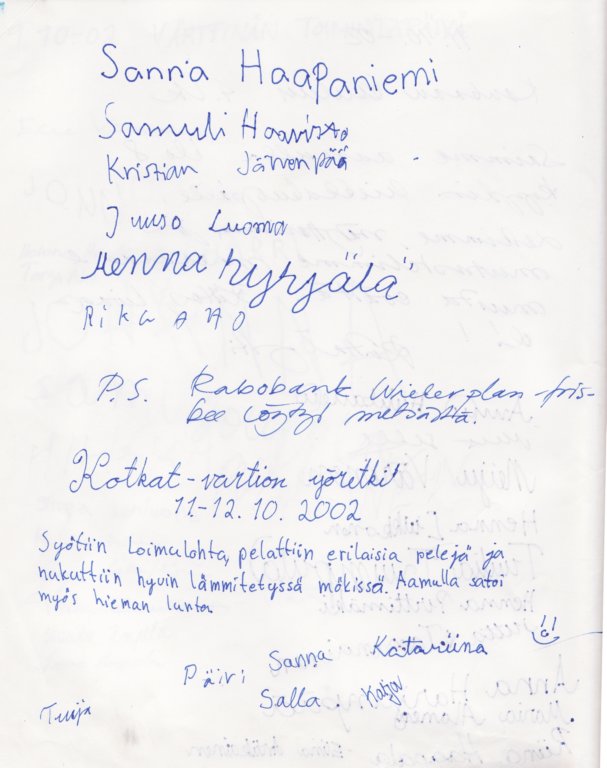 Sanna Haapaniemi
Samuli Haavisto
Kristian Järvenpää
Juuso Luoma
Henna Hyhjälä
Riku AHO
P.S. Rabobank Wielerplan -fris-
bee löytyi metsästä.
Kotkat-vartion yöretki!
11-12.10.2002
Syötiin loimulohta, pelattiin erilaisia pelejä ja
nukuttiin hyvin lämmitetyssä mökissä. Aamulla satoi
myös hieman lunta.
Päivi Sanna Katariina
Tuija Salla Katja